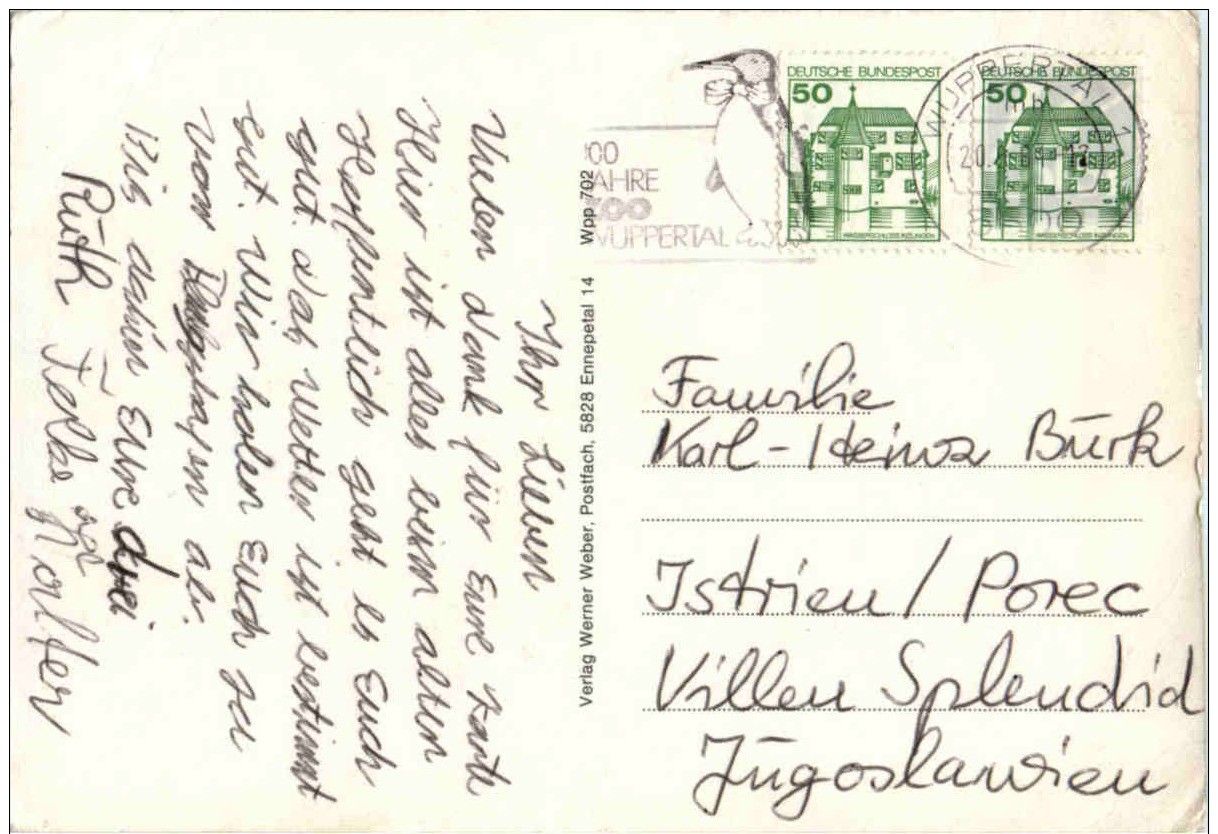 Ihr Lieben
Vielen Dank für Eure Karte
Hier ist alles beim alten
Hoffentlich geht es Euch
gut. Das Wetter ist bestimmt
gut. Wir holen Euch zu
vom Flughafen ab.
Bis dahin Eure drei
Ruth Felke
Verlag Werner Weber, Postfach, 5828 Ennepetal 14 Wpp 702
00
JAHRE
ZOO
WUPPERTAL
DEUTSCHE BUNDESPOST
50
WASSERSCHLOSS INZLINGEN
DEUTSCHE BUNDESPOST
50
WASSERSCHLOSS INZLINGEN
WUPPERTAL 1
mb
20.
Familie
Karl-Heinz Bürk
Istrien/Porec
Villen Splendid
Jugoslawien